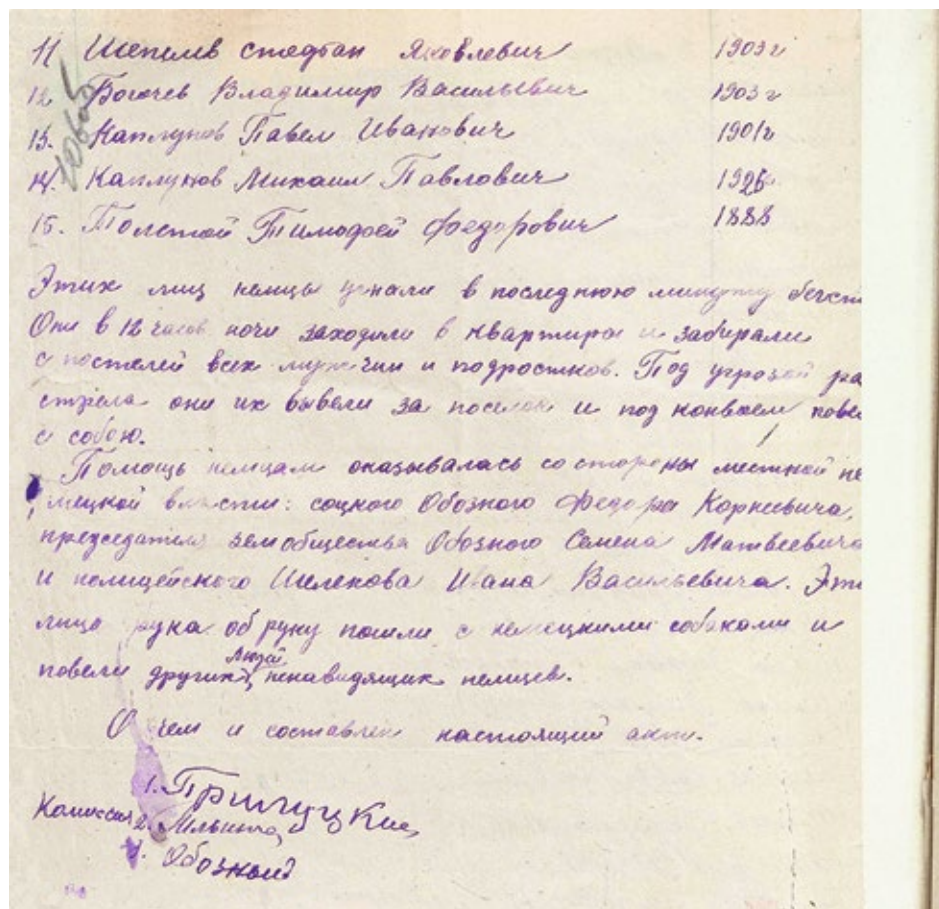 11 Шепилов Стефан Яковлевич 1903 г
12 Богочев Владимир Васильевич 1903 г
13. Каплунов Павел Иванович 1901 г
14. Каплунов Михаил Павлович 1926
15. Толстой Тимофей Федорович 1888
10665
Этих лиц немцы угнали в последнюю минуту бегст
Они в 12 часов ночи заходили в квартиры и забирали
с постелей всех мужчин и подростков. Под угрозой ра
стрела они их вывели за поселок и под конвоем пове
с собою.
Помощь немцам оказывалась со стороны местной не
мецкой власти: соцкого Обозного Федора Корнеевича,
председателя земобщества Обозного Семена Матвеевича
и полицейского Шелехова Ивана Васильевича. Эти
лица рука об руку пошли с немецкими собаками и
повели других людей, ненавидящих немцев.
О чем и составлен настоящий акт.
1. Прилуцкий
Комиссия 2.
3. Обозной